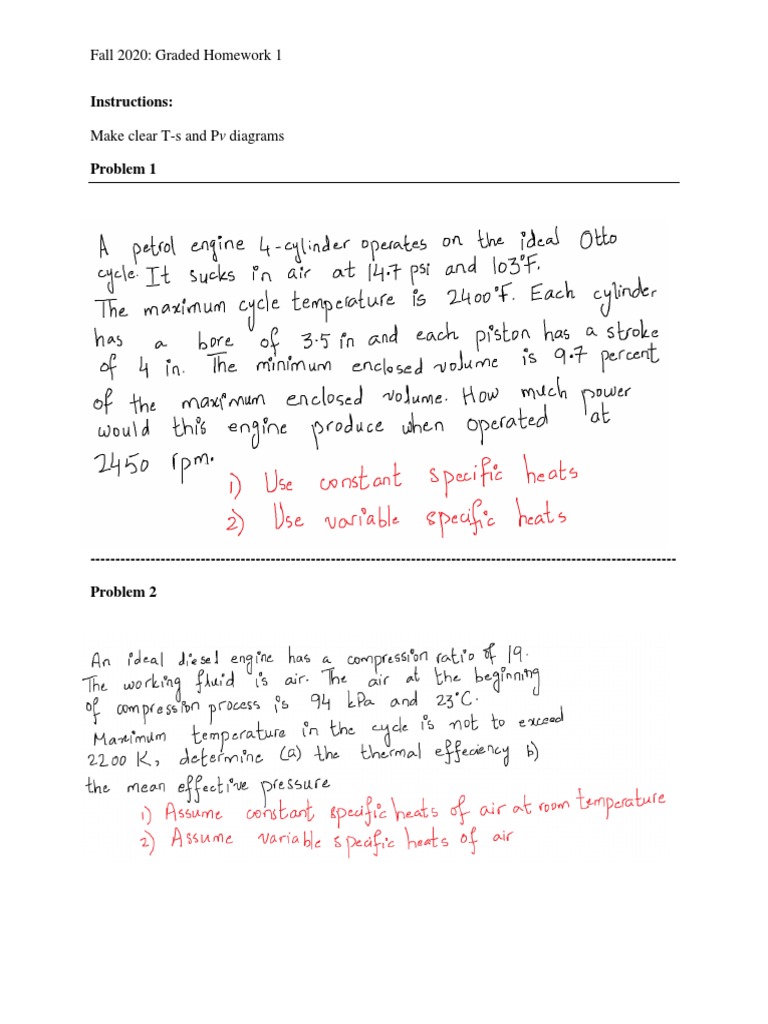 Fall 2020: Graded Homework 1
Instructions:
Make clear T-s and Pv diagrams
Problem 1
A petrol engine 4-cylinder operates on the ideal Otto
cycle. It sucks in air at 14.7 psi and 103°F.
The maximum cycle temperature is 2400°F. Each cylinder
has a bore of 3.5 in and each piston has a stroke
of 4 in. The minimum enclosed volume is 9.7 percent
of the maximum enclosed volume. How much power
would this engine produce when operated at
2450 rpm.
1) Use constant specific heats
2) Use variable specific heats
Problem 2
An ideal diesel engine has a compression ratio of 19.
The working fluid is air. The air at the beginning
of compression process is 94 kPa and 23°C.
Maximum temperature in the cycle is not to exceed
2200 K, determine (a) the thermal effeciency b)
the mean effective pressure
1) Assume constant specific heats of air at room temperature
2) Assume variable specific heats of air